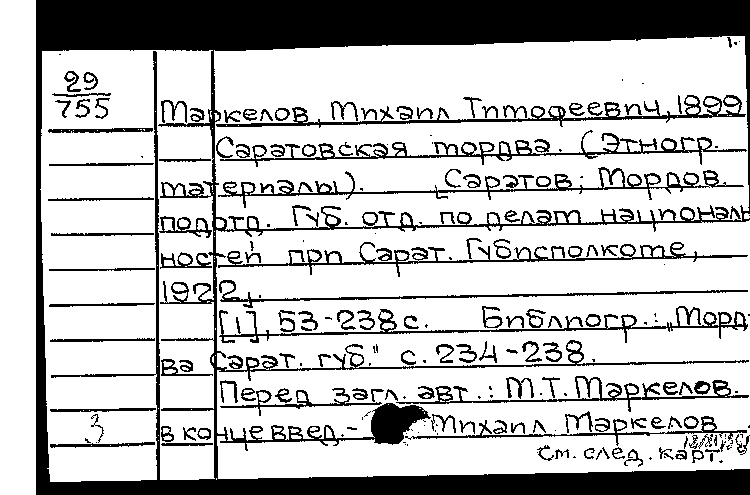 1.
29
755
Маркелов, Михаил Тимофеевич, 1899
Саратовская мордва. (Этногр.
материалы). [Саратов; Мордов.
подотд. Губ. отд. по делам националь
ностей при Сарат. Губисполкоме,
1922].
[1], 53-238 с. Библиогр.: „Морд-
ва Сарат. губ." с. 234-238.
Перед загл. авт.: М.Т. Маркелов.
3 в конце введ.- Михаил Маркелов
См. след. карт.